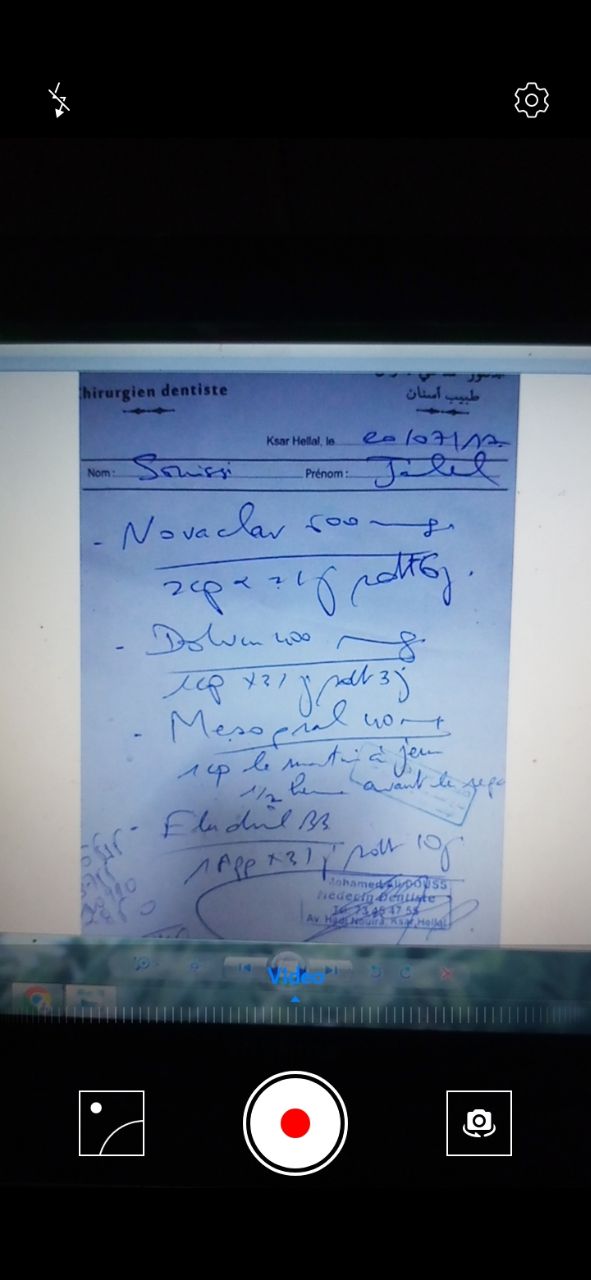 Chirurgien dentiste
طبيب أسنان
Ksar Hellal, le 20/07/17
Nom: Souissi Prénom: Jalel
- Novaclav 500 mg
2cp x 2/j pdt 6j.
- Dolven 400 mg
1cp x 3/j pdt 3j
- Mesopral 40 mg
1cp le matin à jeun
1/2 heure avant le repas
- Eludril BB
1 App x 3/j pdt 10j
Mohamed Ali DOUSS
Médecin Dentiste
Av. Hédi Nouira, Ksar Hellal
Video